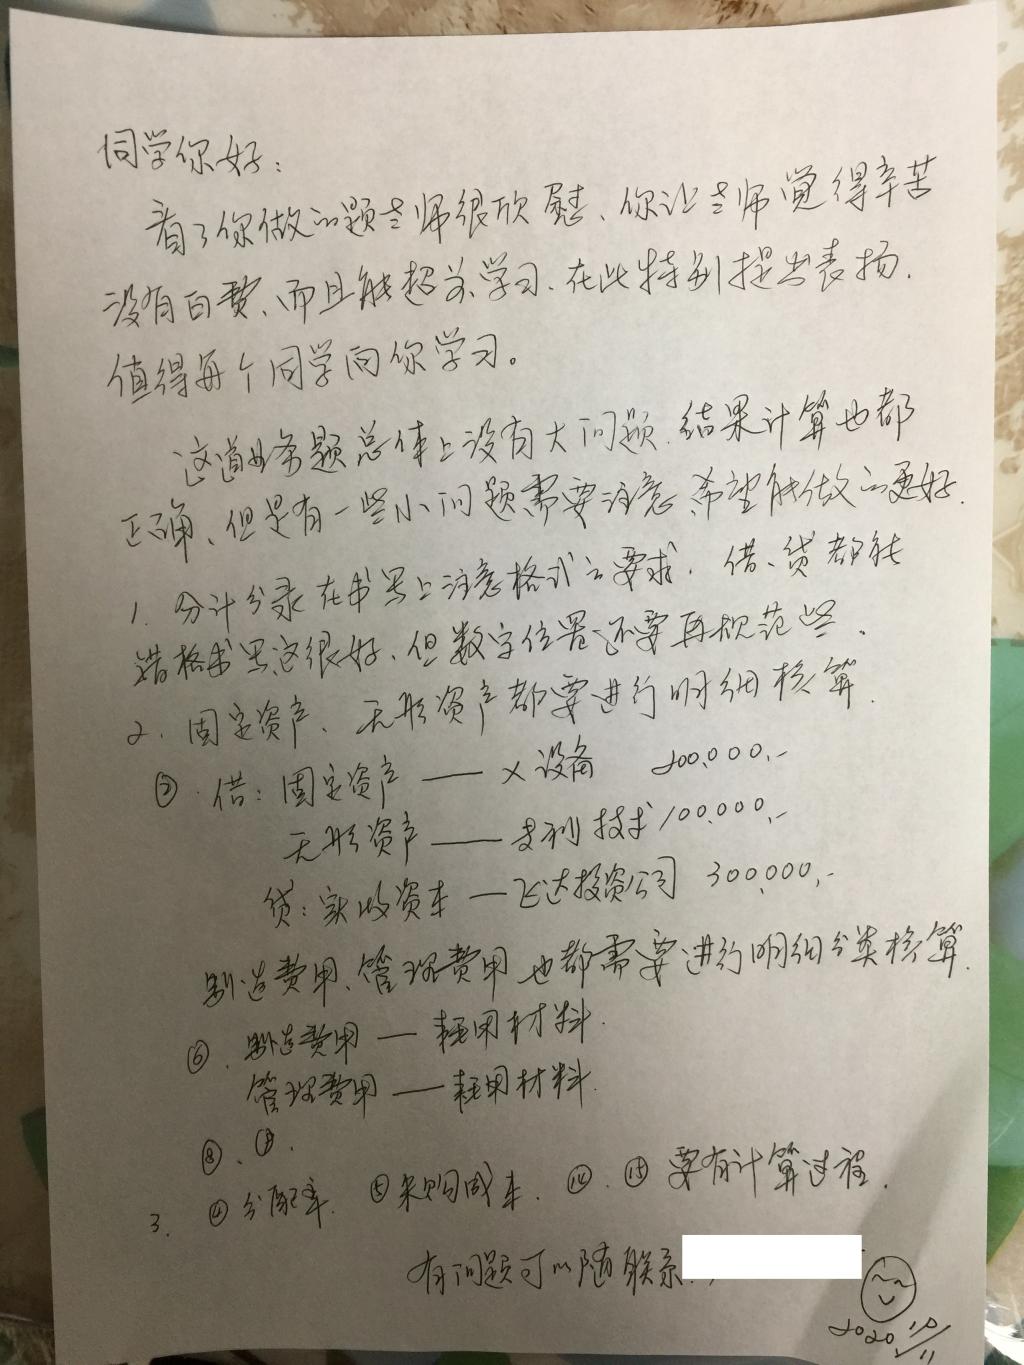 同学你好：
看了你做的题老师很欣慰、你让老师觉得辛苦
没有白费、而且能超前学习、在此特别提出表扬.
值得每个同学向你学习。
这道业务题总体上没有大问题.结果计算也都
正确、但是有一些小问题需要注意.希望能做的更好.
1. 分计分录在书写上注意格式的要求. 借、贷都能
错格书写这很好、但数字位置还要再规范些.
2. 固定资产、无形资产都要进行明细核算.
② 借：固定资产 — X设备 200,000.-
无形资产 — 专利技术 100,000.-
贷：实收资本 — 飞达投资公司 300,000.-
制造费用、管理费用也都需要进行明细分类核算.
⑥. 制造费用 — 耗用材料.
管理费用 — 耗用材料.
⑧、
3. ④分配率. ⑤采购成本. ⑭. ⑮ 要有计算过程.
有问题可以随联系.
2020.10/11